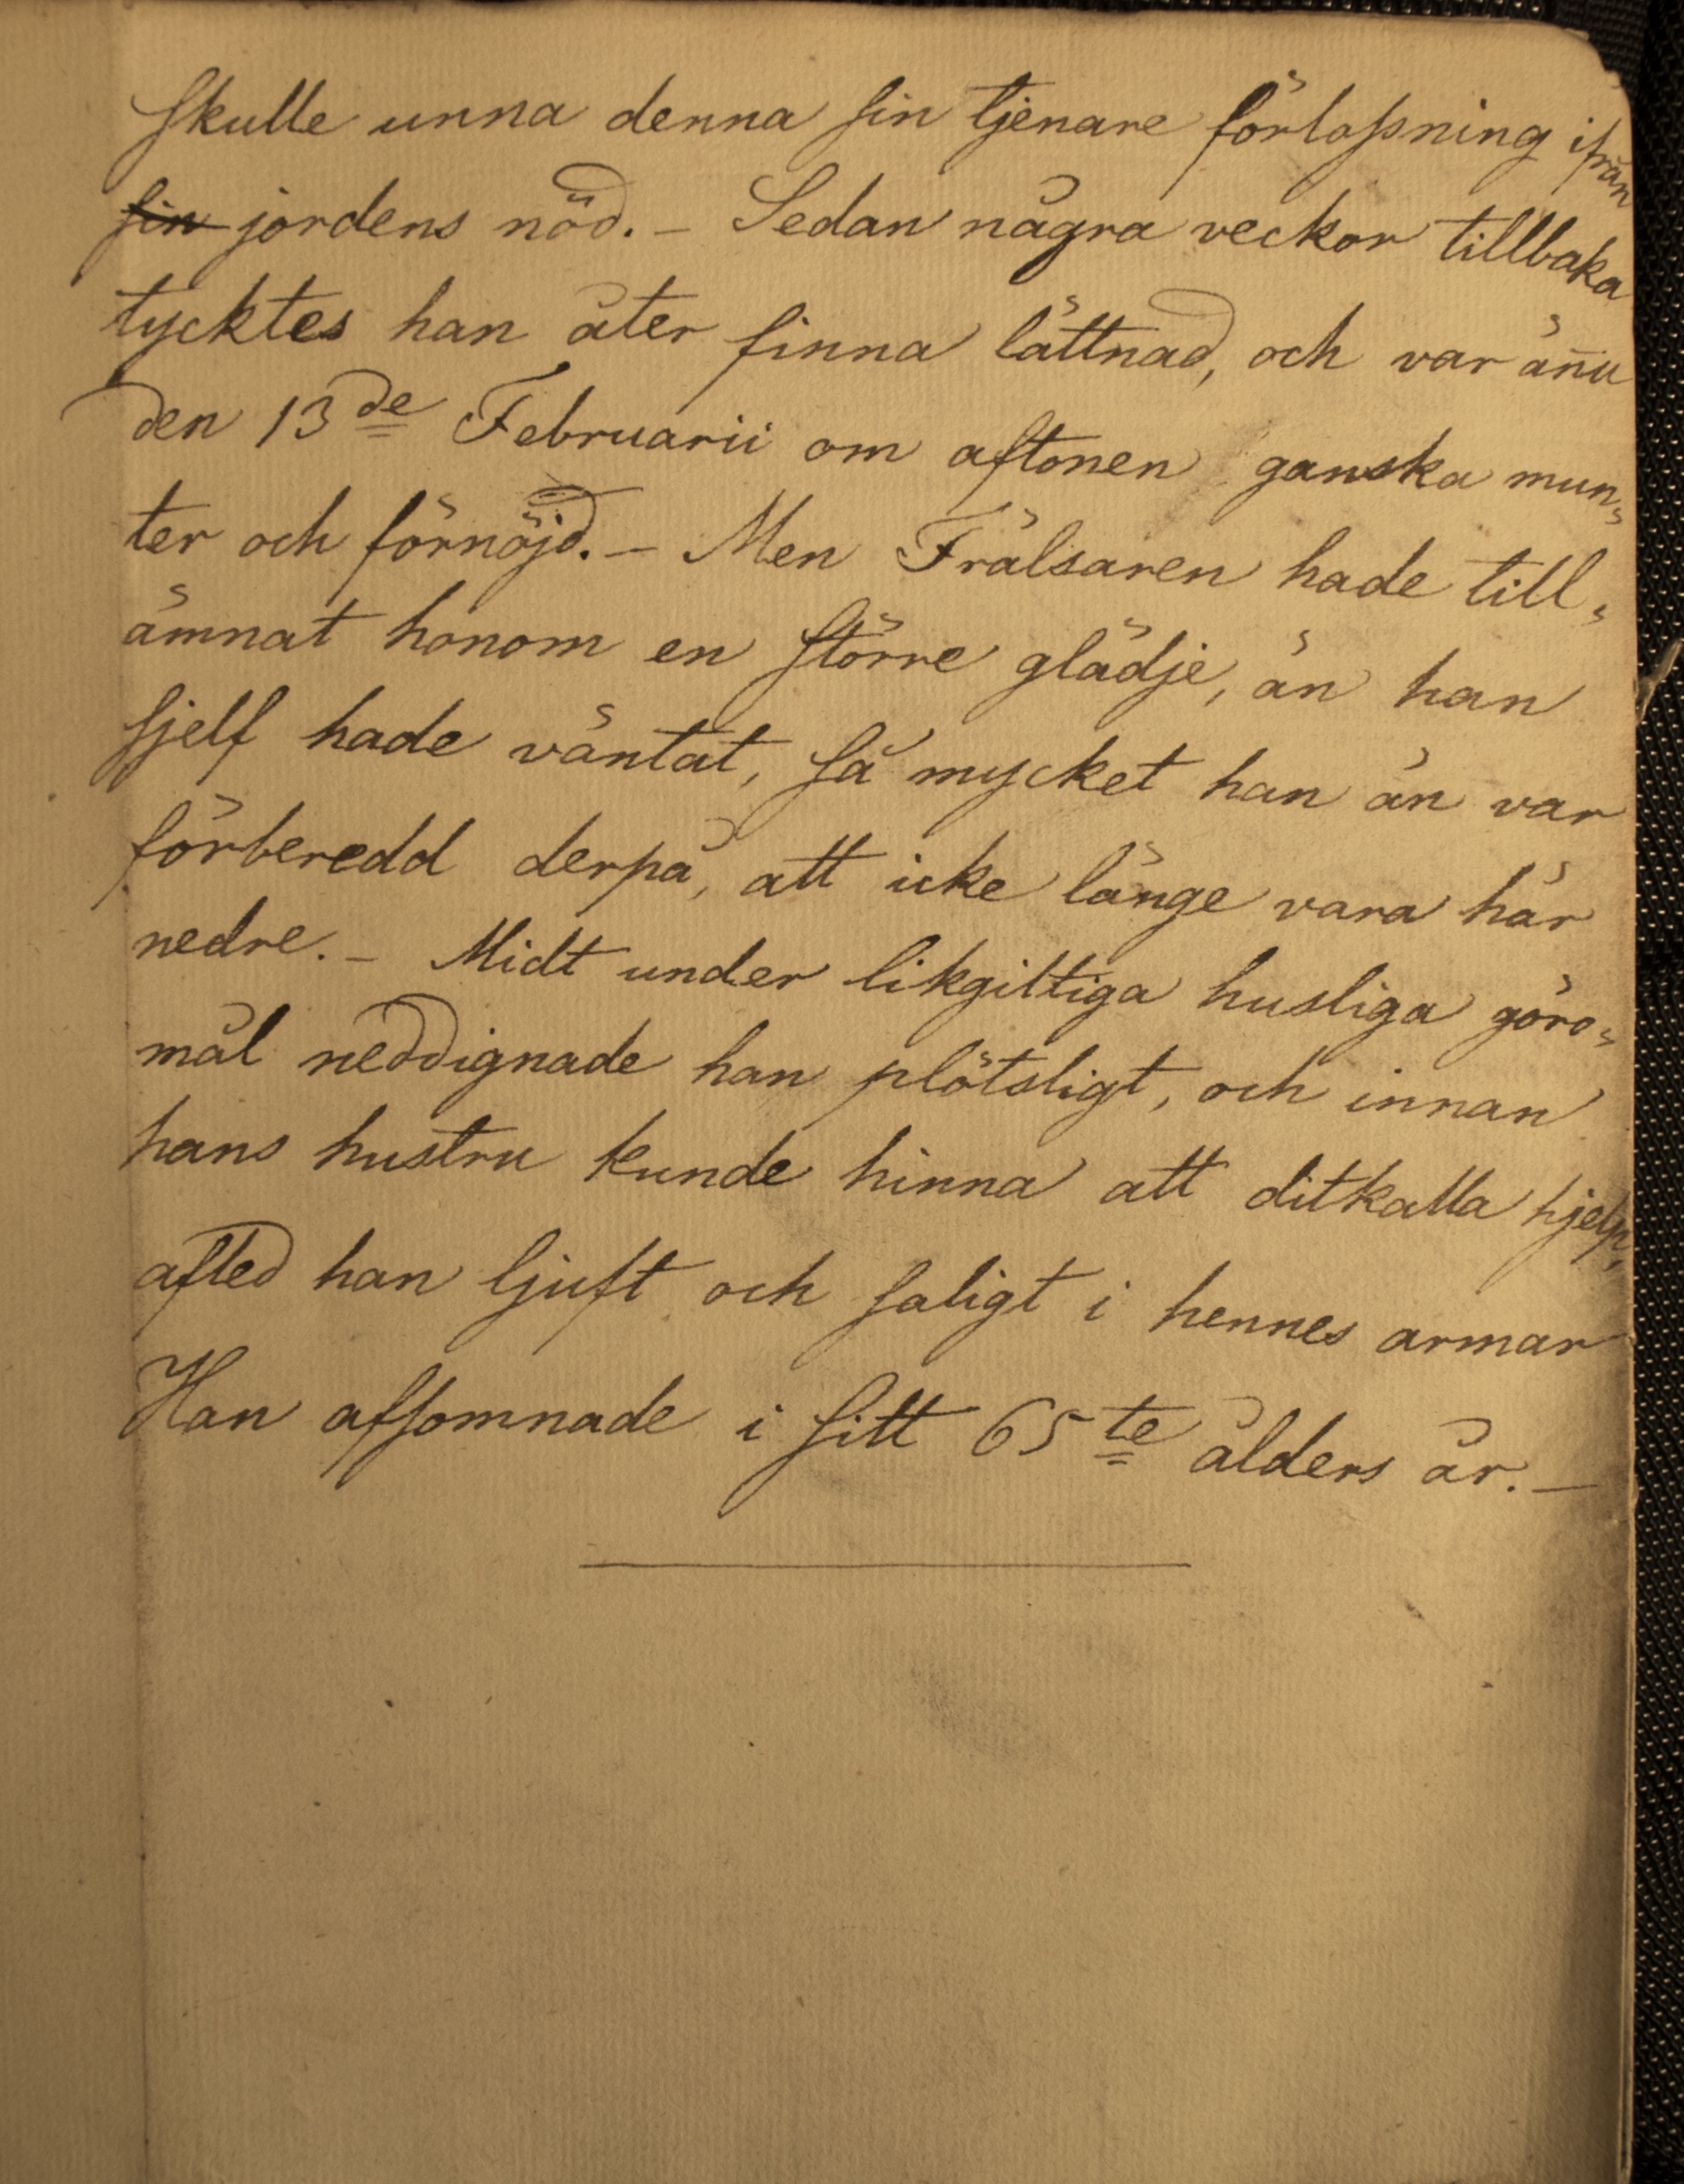 skulle unna denna sin tjenare förlossning ifrån
sin jordens nöd. – Sedan några veckor tillbaka
tycktes han åter finna lättnad, och var än̄u
den 13de Februarii om aftonen ganska mun=
ter och förnöjd. – Men Frälsaren hade till=
ämnat honom en större glädje, än han
sjelf hade väntat, så mycket han än var
förberedd derpå, att icke länge vara här
nedre. – Midt under likgiltiga husliga göro=
mål neddignade han plötsligt, och innan
hans hustru kunde hinna att ditkalla hjelp,
afled han ljuft och saligt i hennes armar
Han afsomnade i sitt 65te ålders år. –